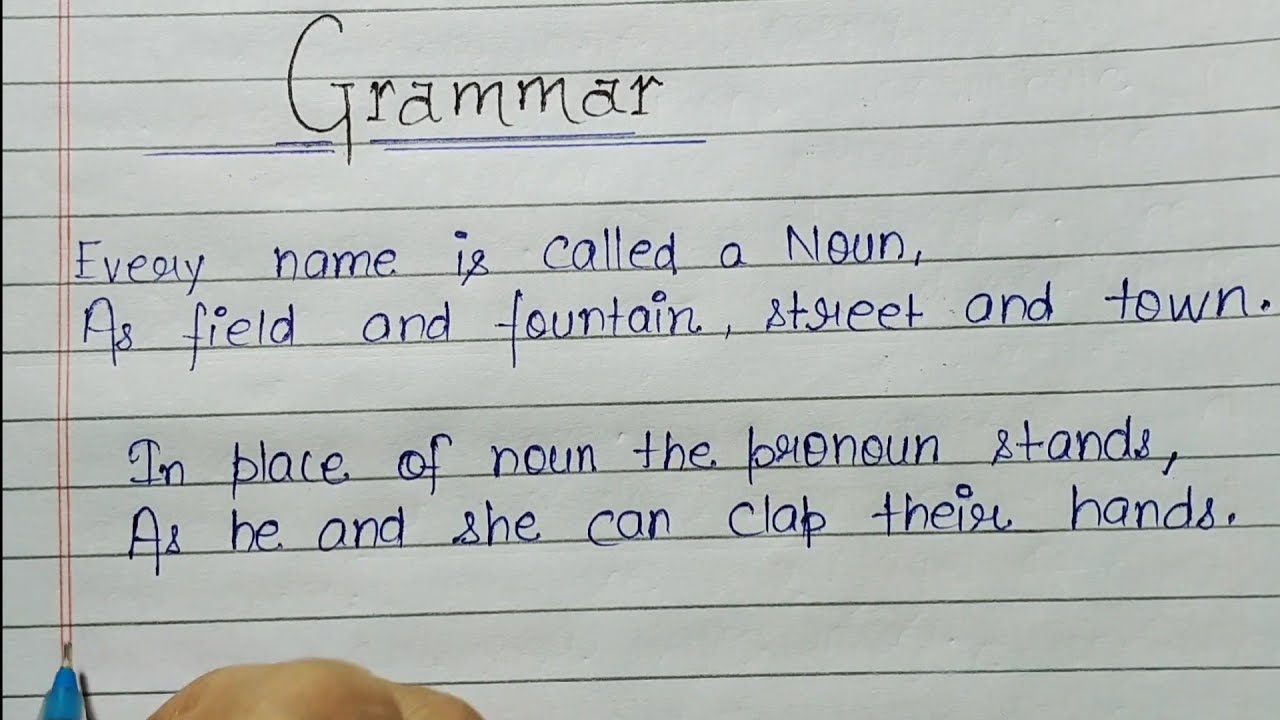 Grammar
Every name is called a Noun,
As field and fountain, street and town.
In place of noun the pronoun stands,
As he and she can clap their hands.